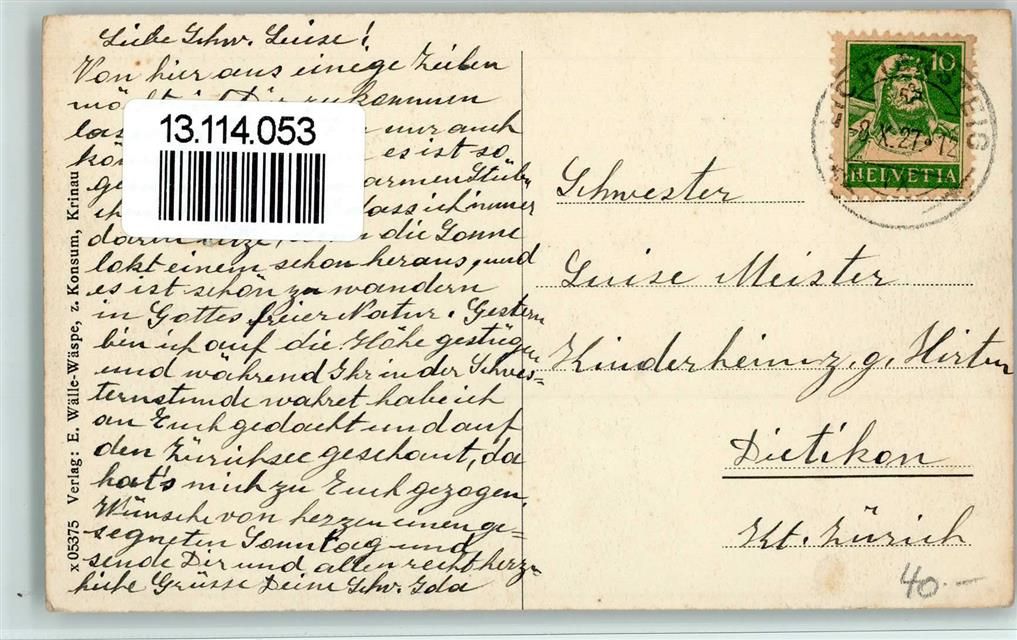 Liebe Schw. Luise!
Von hier aus einege Zeilen
zukommen
nur auch
es ist so
armen Stüb-
dass ich immer
die Sonne
lokt einem schon heraus, und
es ist schön zu wandern
in Gottes freier Natur. Gestern
bin ich auf die Höhe gestiegen
und während Ihr in der Schwes=
ternstunde wahret habe ich
an Euch gedacht und auf
den Zürichsee geschaut, da
hat's mich zu Euch gezogen.
Wünsche von herzen einen ge=
segneten Sonntag und
sende Dir und allen recht herz-
liche Grüsse Deine Schw. Ida
13.114.053
x 05375 Verlag: E. Wälle-Wäspe, z. Konsum, Krinau
10
HELVETIA
2.X.27-12
Schwester
Luise Meister
Kinderheim z. g. Hirten
Dietikon
Kt. Zürich
40.-